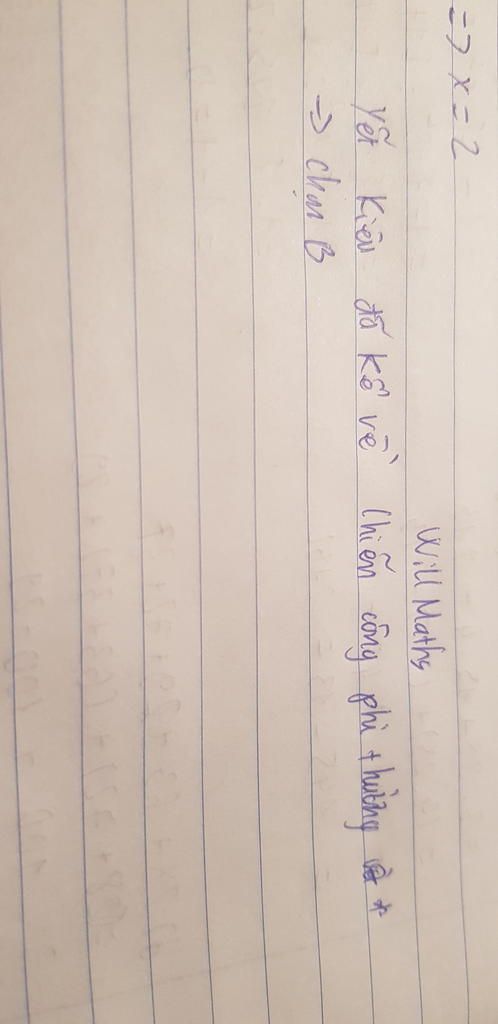 => x = 2
Will Maths
Yết Kiêu đã kể về chiến công phi thường
→ chọn B